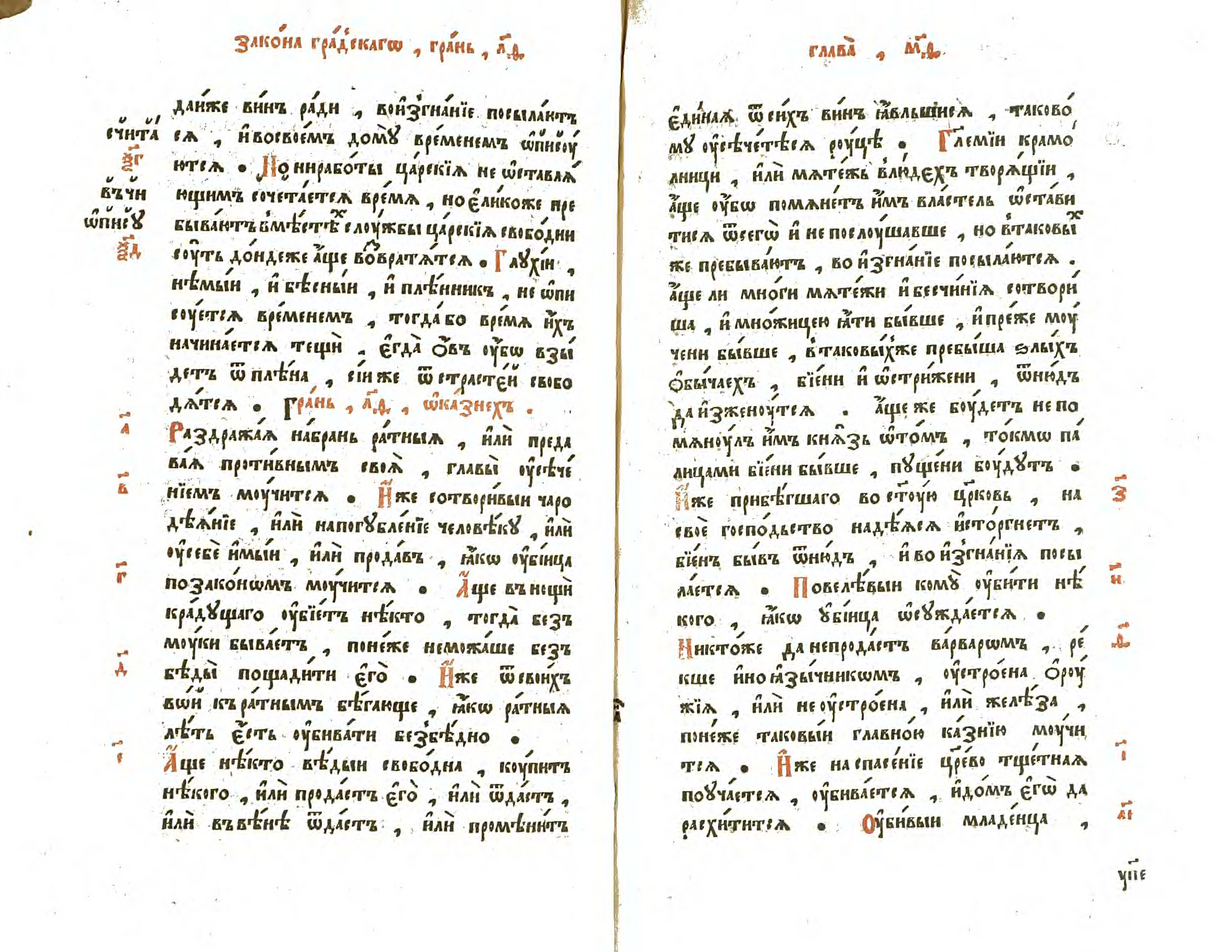 Зако́на гра́дскагѡ , гра́нь , л҃ѳ
да́йже ви́нъ ра́ди , воиз̾гна́нїе посыла́ютъ
сѧ , и҆восвое́мъ дому̀ вре́менемъ ѡ҆писоу́
ютсѧ . Но нирабо́ты ца́рскїѧ не ѡ҆ставлѧ́
ющимъ сочета́етсѧ вре́мѧ , но є҆ли́коже пре
быва́ютъ в̾мѣ́стѣⷯ слоу́жбы ца́рскїѧ свобо́дни
соу́ть до́ндеже а҆́ще во́звратѧ́тсѧ . Глꙋхі́и ,
нѣмы́и , и҆ бѣ́сныи , и҆ плѣ́нникъ , не ѡ҆пи
соу́етсѧ вре́менемъ , тогда́ бо вре́мѧ и҆́хъ
начина́етсѧ тещѝ , є҆гда̀ ѻ҆́въ оу҆́бѡ взы́
детъ ѿ плѣ́на , сі́и же ѿ страсте́й свобо
дѧ́тсѧ . Гра́нь , л҃ѳ , ѡ҆ ка́знехъ .
Раздража́ѧ на́брань ра́тныѧ , и҆лѝ преда
ва́ѧ проти́внымъ своѧ̀ , главы̀ оу҆сѣче́
нїемъ моу́читсѧ . И҆́же сотвори́выи чаро
дѣѧ́нїе , и҆лѝ напогꙋбле́нїе человѣ́кꙋ , и҆лѝ
оу҆себѐ и҆мы́и , и҆лѝ прода́въ , ꙗ҆́кѡ оу҆бі́ица
по зако́нѡмъ моу́читсѧ . А҆́ще въ нощѝ
крадꙋ́щаго оу҆бїе́тъ нѣ́кто , тогда̀ безъ
моу́ки быва́етъ , поне́же немо́жаше безъ
бѣды̀ пощади́ти є҆го̀ . И҆́же ѿ свои́хъ
во́и къ ра́тнымъ бѣ́гающе , ꙗ҆́кѡ ра́тныѧ
лѣ́ть є҆́сть оу҆бива́ти без̾бѣ́дно .
А҆́ще нѣ́кто вѣ́дыи свобо́дна , коу́питъ
нѣ́кого , и҆лѝ прода́стъ є҆го̀ , и҆лѝ ѿда́стъ ,
и҆лѝ въ вѣ́нѣ ѿда́стъ , и҆лѝ промѣ́нитъ
сч҃ита́
ѯ҃г
въ чи
ѡ҆писꙋ
ѯ҃д
а҃
в҃
г҃
д҃
є҃
глава̀ , м҃ѳ.
є҆ди́наѧ ѿ си́хъ ви́нъ ꙗ҆́вльшїисѧ , таково́
мꙋ оу҆сѣче́тсѧ рꙋцѣ̀ . Гл҃емїи крамо́
лници , и҆лѝ мѧте́жь в̾лю́дехъ творѧ́щїи ,
а҆́ще оу҆́бѡ помѧне́тъ и҆̀мъ вла́стель ѡ҆ста́ви
тисѧ ѿ сегѡ̀ и҆ не послоу́шавше , но в̾таковы́ⷯ
же пребыва́ютъ , во и҆з̾гна́нїе посыла́ютсѧ .
а҆́ще ли мно́ги мѧте́жи и҆ бесчи́нїѧ сотвори́
ша , и҆ мно́жицею ꙗ҆́ти бы́вше , и҆ пре́же моу́
чени бы́вше , в̾таковы́х̾же пребы́ша ѕлы́хъ
ѻ҆бы́чаехъ , бїе́ни и҆ ѡ҆стри́жени , ѿню́дъ
да и҆зженоу́тсѧ . а҆́ще же боу́детъ не по
мѧноу́лъ и҆̀мъ кнѧ́зь ѡ҆то́мъ , то́кмѡ па́
лицами бїе́ни бы́вше , пꙋще́ни боу́дꙋтъ .
И҆́же прибѣ́гшаго во ст҃ꙋ́ю цр҃ковь , на
своѐ госпо́дьство надѣ́ѧсѧ и҆сто́ргнетъ ,
бїе́нъ бы́въ ѿню́дъ , и҆ во и҆з̾гна́нїѧ посы
ла́етсѧ . Повелѣ́выи комꙋ̀ оу҆би́ти нѣ́
кого , ꙗ҆́кѡ ᲂу҆бі́ица ѡ҆сꙋжда́етсѧ .
Никто́же да непрода́стъ ва́рварѡмъ , ре́
кше и҆ноꙗ҆зы́чникомъ , оу҆стро́ена ѻ҆роу́
жїѧ , и҆лѝ не оу҆стро́ена , и҆лѝ желѣ́за ,
поне́же таковы́и главно́ю ка́знїю моу́чи
тсѧ . И҆́же на спасе́нїе цр҃ево тще́тнаѧ
поꙋча́етсѧ , оу҆бива́етсѧ , и҆до́мъ є҆гѡ̀ да
расхи́титсѧ . Оу҆би́выи младе́нца ,
з҃
и҃
ѳ҃
і҃
а҃і
ꙋпе